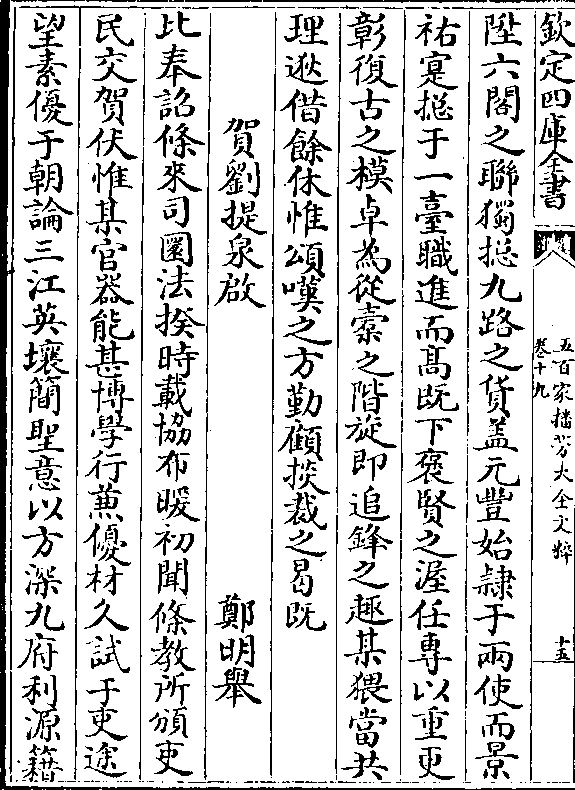 欽定四庫全書
五百家播芳大全文粹
卷十九
十五
陞六閣之聯獨揔九路之貨盖元豐始隷于兩使而景
祐寔揔于一臺職進而髙既下褒賢之渥任專以重更
彰復古之模卓為從橐之階旋即追鋒之趣某猥當共
理逖借餘休惟頌嘆之方勤顧掞裁之曷既
賀劉提泉啟
鄭明舉
比奉詔條來司圜法揆時載協布暖初聞條教所頒吏
民交賀伏惟某官器能甚博學行兼優材久試于吏途
望素優于朝論三江英壤簡聖意以方深九府利源籍